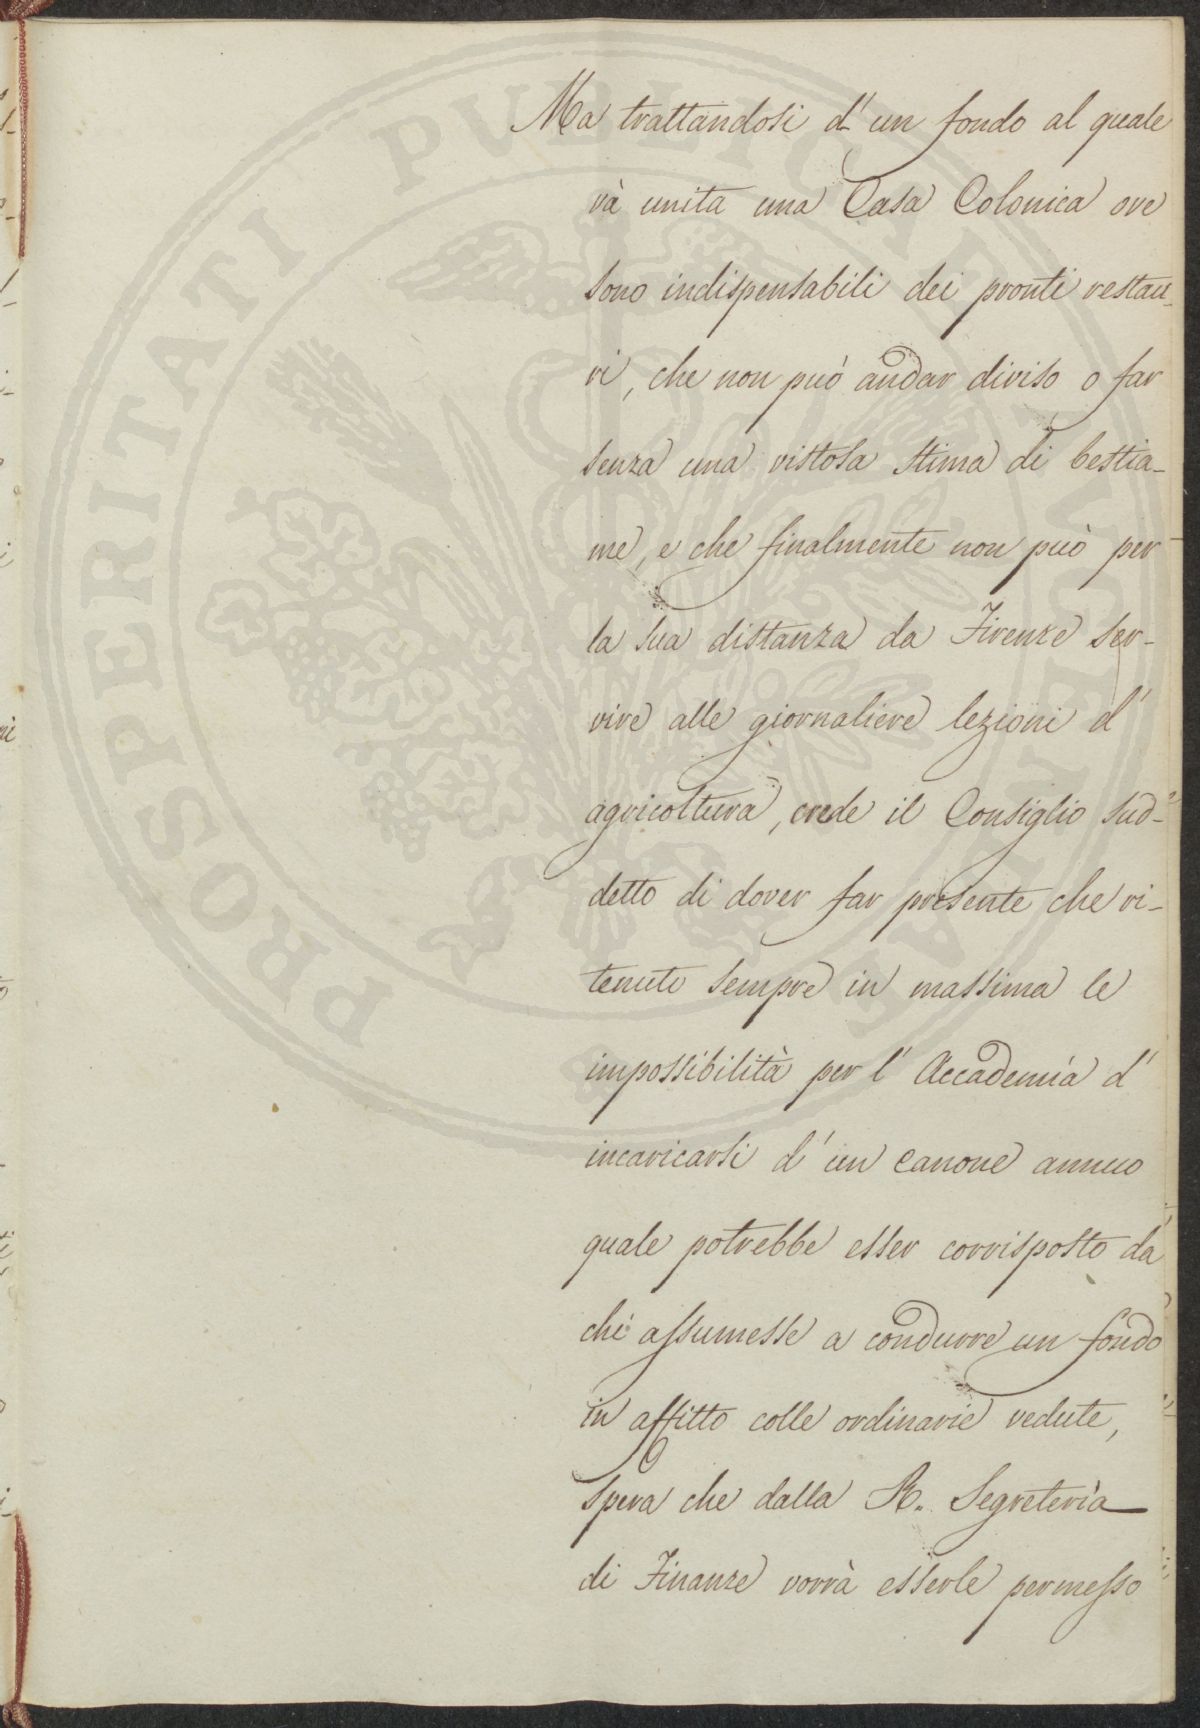 Ma trattandosi d'un fondo al quale
và unita una Casa Colonica ove
sono indispensabili dei pronti restau_
ri, che non può andar diviso o far
senza una vistosa stima di bestia_
me, e che finalmente non può per
la sua distanza da Firenze ser_
vire alle giornaliere lezioni d'
agricoltura, crede il Consiglio sud_
detto di dover far presente che ri_
tenuto sempre in massima le
impossibilità per l'Accademia d'
incaricarsi d'un canone annuo
quale potrebbe esser corrisposto da
chi assumesse a condurre un fondo
in affitto colle ordinarie vedute,
spera che dalla R. Segreteria
di Finanze vorrà esserle permesso
PROSPERITATI PUBLICAE AUGENDAE